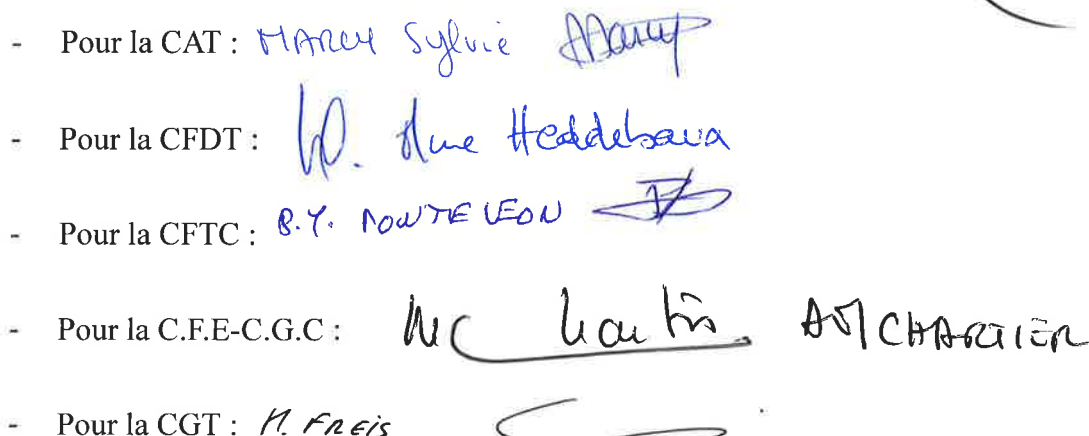 - Pour la CAT : MARCY Sylvie Marcy
- Pour la CFDT : Anne Heddebaux
- Pour la CFTC : B.Y. MONTELEON
- Pour la C.F.E-C.G.C : MC Martin AM CHARTIER
- Pour la CGT : M. FREIS